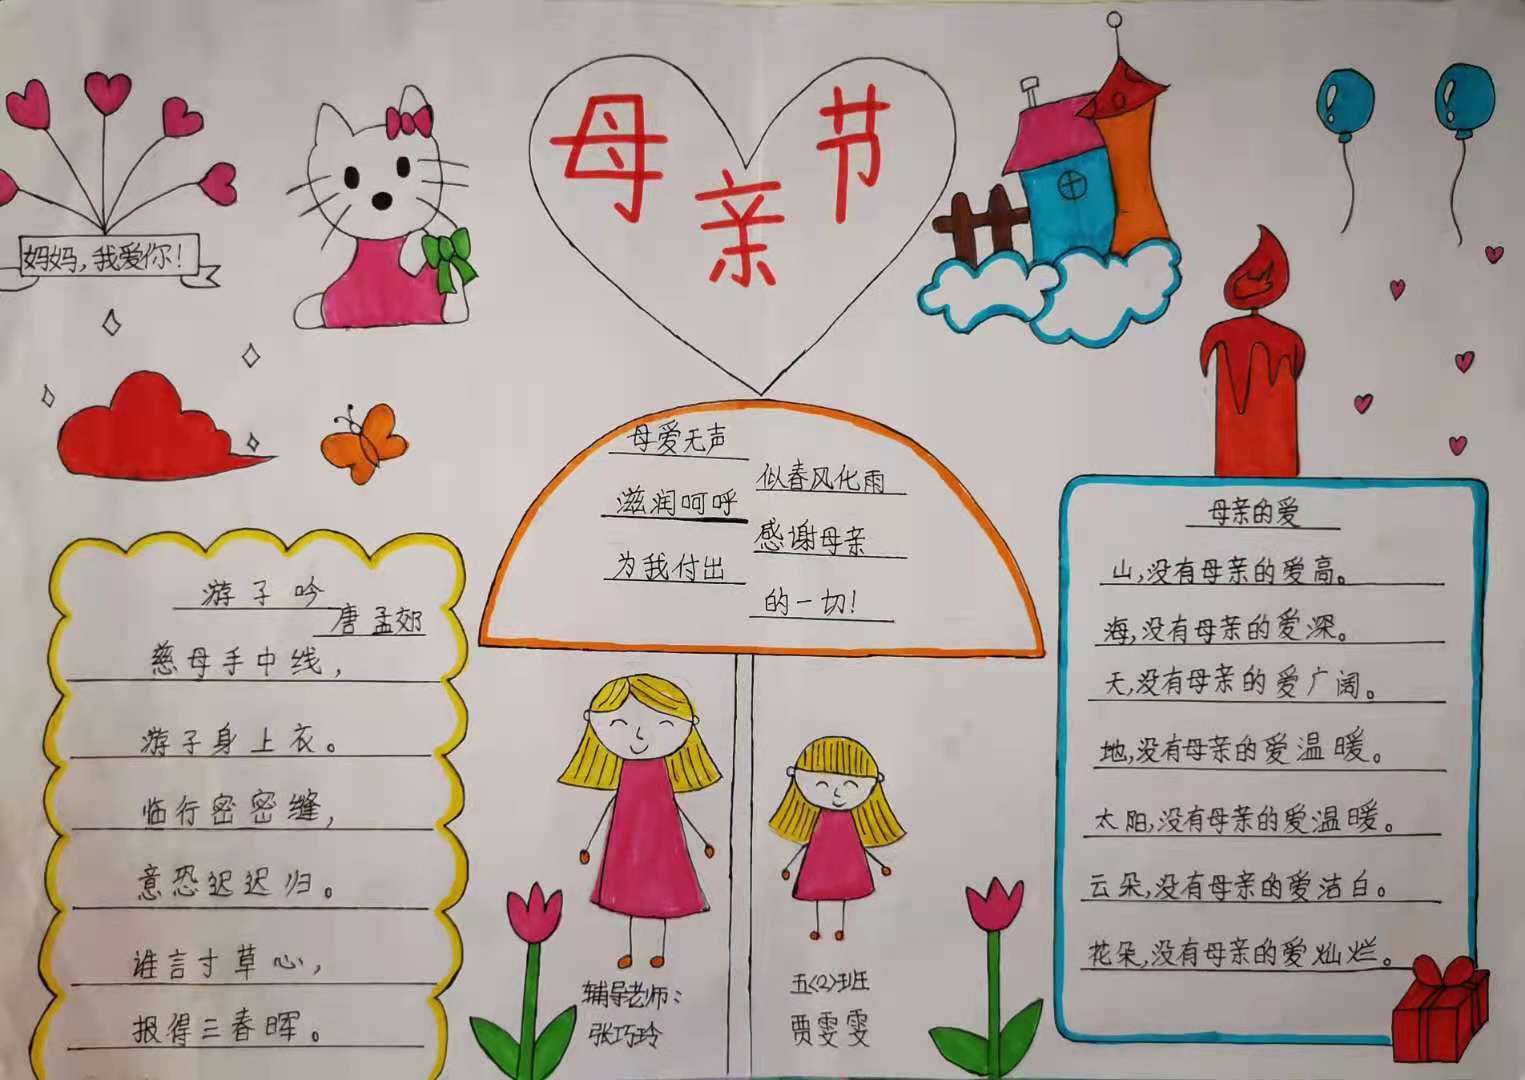 母亲节
妈妈，我爱你！
母爱无声
似春风化雨
滋润呵呼
感谢母亲
为我付出
的一切！
游子吟
唐孟郊
慈母手中线，
游子身上衣。
临行密密缝，
意恐迟迟归。
谁言寸草心，
报得三春晖。
母亲的爱
山，没有母亲的爱高。
海，没有母亲的爱深。
天，没有母亲的爱广阔。
地，没有母亲的爱温暖。
太阳，没有母亲的爱温暖。
云朵，没有母亲的爱洁白。
花朵，没有母亲的爱灿烂。
辅导老师：
张巧玲
五（2）班
贾雯雯